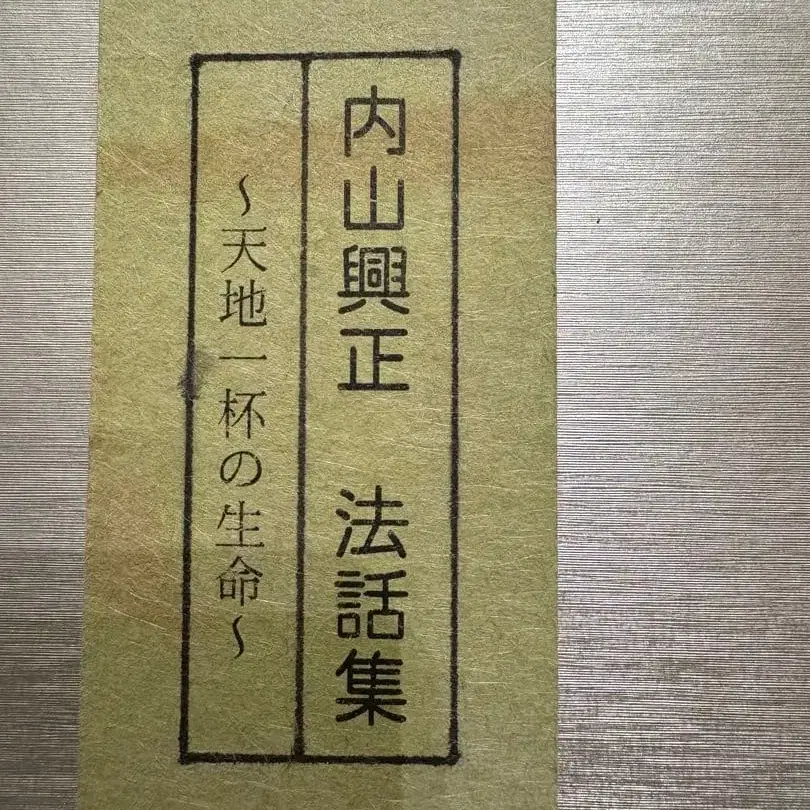 内山興正 法話集
〜天地一杯の生命〜